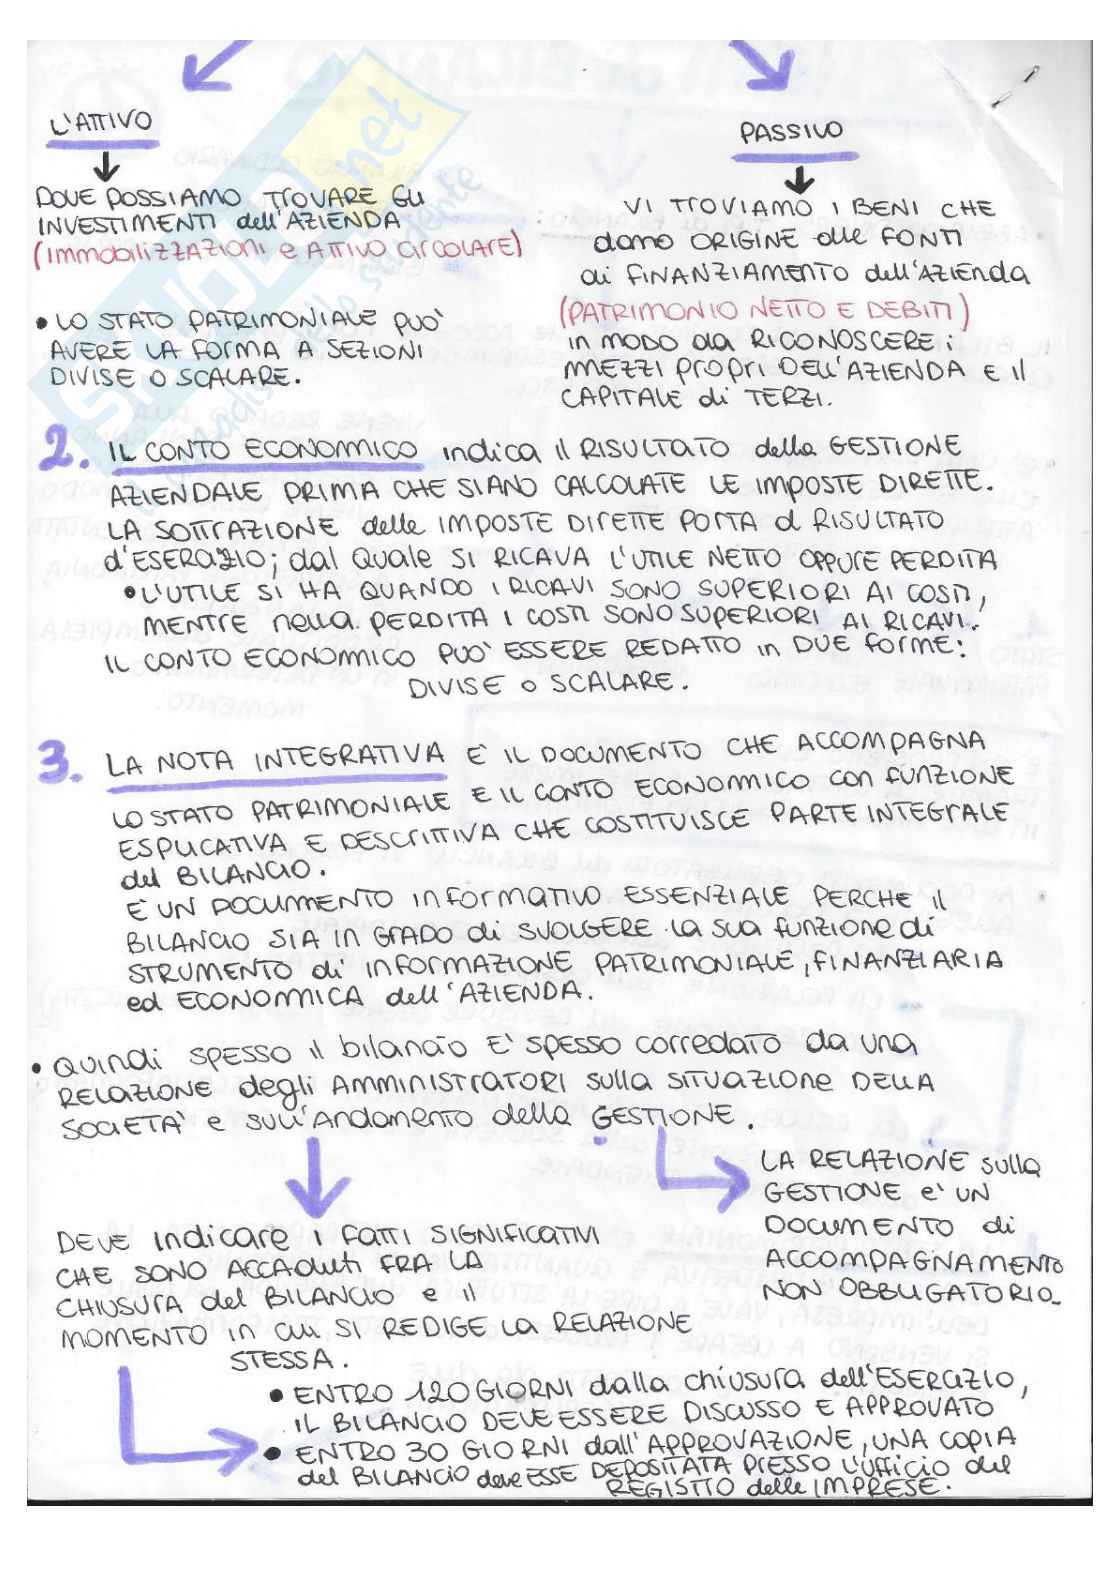 L'ATTIVO
DOVE POSSIAMO TROVARE GLI
INVESTIMENTI dell'AZIENDA
(Immobilizzazioni e ATTIVO CIRCOLARE)
• LO STATO PATRIMONIALE PUO'
AVERE LA FORMA A SEZIONI
DIVISE O SCALARE.
PASSIVO
VI TROVIAMO I BENI CHE
danno ORIGINE alle FONTI
di FINANZIAMENTO dell'AZIENDA
(PATRIMONIO NETTO E DEBITI)
in modo da RICONOSCERE i
MEZZI PROPRI DELL'AZIENDA E il
CAPITALE di TERZI.
2. IL CONTO ECONOMICO indica il RISULTATO della GESTIONE
AZIENDALE PRIMA CHE SIANO CALCOLATE LE IMPOSTE DIRETTE.
LA SOTTRAZIONE delle IMPOSTE DIRETTE PORTA al RISULTATO
d'ESERCIZIO; dal QUALE SI RICAVA L'UTILE NETTO OPPURE PERDITA
• L'UTILE SI HA QUANDO I RICAVI SONO SUPERIORI AI COSTI,
MENTRE nella PERDITA I COSTI SONO SUPERIORI AI RICAVI.
IL CONTO ECONOMICO PUO' ESSERE REDATTO in DUE forme:
DIVISE o SCALARE.
3. LA NOTA INTEGRATIVA E' IL DOCUMENTO CHE ACCOMPAGNA
LO STATO PATRIMONIALE E IL CONTO ECONOMICO con FUNZIONE
ESPLICATIVA E DESCRITTIVA CHE COSTITUISCE PARTE INTEGRALE
del BILANCIO.
E' UN DOCUMENTO INFORMATIVO ESSENZIALE PERCHE IL
BILANCIO SIA IN GRADO di SVOLGERE la sua funzione di
STRUMENTO di INFORMAZIONE PATRIMONIALE, FINANZIARIA
ed ECONOMICA dell'AZIENDA.
• Quindi SPESSO il bilancio E' spesso corredato da una
RELAZIONE degli AMMINISTRATORI sulla SITUAZIONE DELLA
SOCIETA' e sull'Andamento della GESTIONE.
LA RELAZIONE sulla
GESTIONE e' UN
DOCUMENTO di
ACCOMPAGNAMENTO
NON OBBLIGATORIO.
DEVE indicare i FATTI SIGNIFICATIVI
CHE SONO ACCADUTI FRA LA
CHIUSURA del BILANCIO e il
MOMENTO in cui SI REDIGE LA RELAZIONE
STESSA.
• ENTRO 120 GIORNI dalla chiusura dell'ESERCIZIO,
IL BILANCIO DEVE ESSERE DISCUSSO E APPROVATO
• ENTRO 30 GIORNI dall'APPROVAZIONE, UNA COPIA
del BILANCIO deve ESSE DEPOSITATA PRESSO L'Ufficio del
REGISTRO delle IMPRESE.
SKUOLA.net